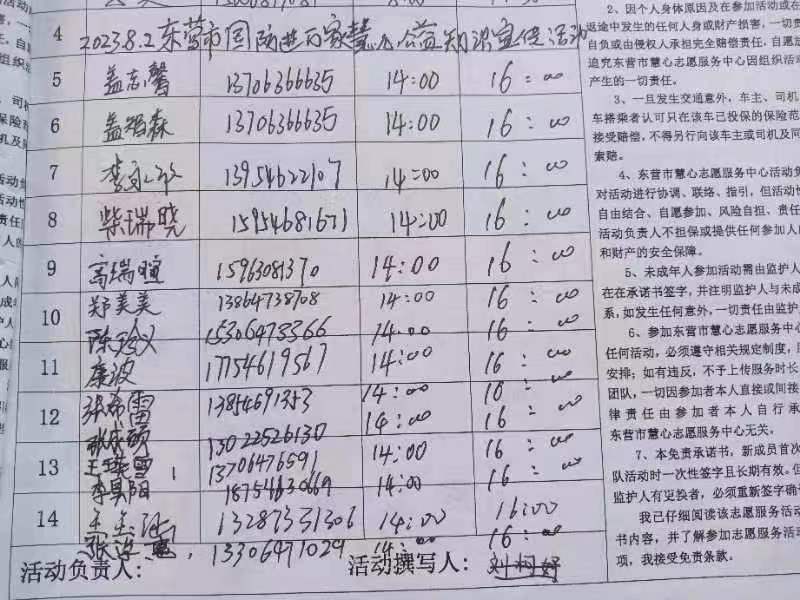 4 2023.8.2东营市国际进万家慧心公益知识宣传活动
5 盖志馨 13706366635 14:00 16:00
6 盖绍森 13706366635 14:00 16:00
7 13954622107 14:00 16:00
8 柴瑞晓 15954681671 14:00 16:00
9 高瑞暄 15963081370 14:00 16:00
10 郑美美 13864738708 14:00 16:00
15306473366 14:00 16:00
11 康波 17754619567 14:00 16:00
12 张希雷 13854691353 14:00 16:00
张成硕 13022526130 14:00 16:00
13 13706476591 14:00 16:00
李昊阳 18754630669 14:00 16:00
14 13287331306 14:00 16:00
13306471029 14:00 16:00
活动负责人: 活动撰写人: 刘柯妤
2、因个人身体原因及在参加活动或在
返途中发生的任何人身或财产损害,一切责
自负或由侵权人承担完全赔偿责任,自愿放
追究东营市慧心志愿服务中心因组织活动
产生的一切责任。
3、一旦发生交通意外,车主、司机
车搭乘者认可只在该车已投保的保险范
接受赔偿,不得另行向该车主或司机及同
索赔。
4、东营市慧心志愿服务中心活动负
对活动进行协调、联络、指引,但活动性
自由结合、自愿参加、风险自担、责任
活动负责人不担保或提供任何参加人的
和财产的安全保障。
5、未成年人参加活动需由监护人
在在承诺书签字,并注明监护人与未成
系,如发生任何意外,一切责任由监护
6、参加东营市慧心志愿服务中心
任何活动,必须遵守相关规定制度,服
安排;如有违反,不予上传服务时长
团队,一切因参加者本人直接或间接
律责任由参加者本人自行承
东营市慧心志愿服务中心无关。
7、本免责承诺书,新成员首次
队活动时一次性签字且长期有效。但
监护人有更换者,必须重新签字确
我已仔细阅读该志愿服务活动
书内容,并了解参加志愿服务活动
项,我接受免责条款。